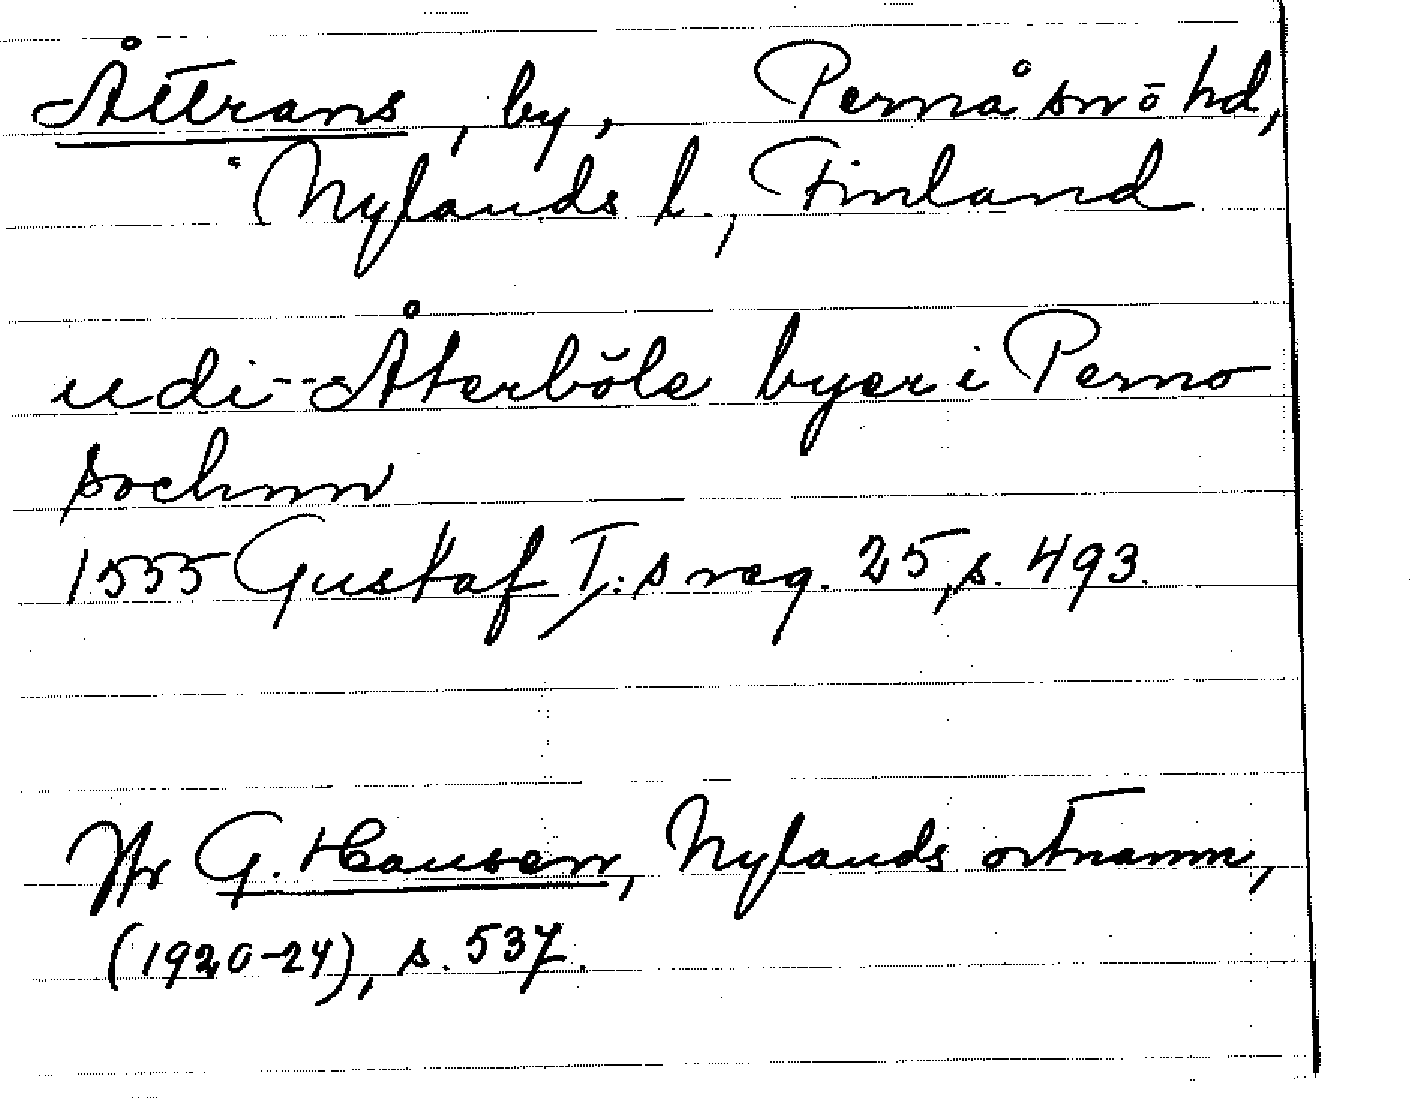 Åttrans, by, Pernå sn o hd,
Nylands l., Finland
udi--Återböle byer i Perno
sochnn
1555 Gustaf I:s reg. 25, s. 493.
Jfr G. Hausen, Nylands ortnamn,
(1920-24), s. 537.